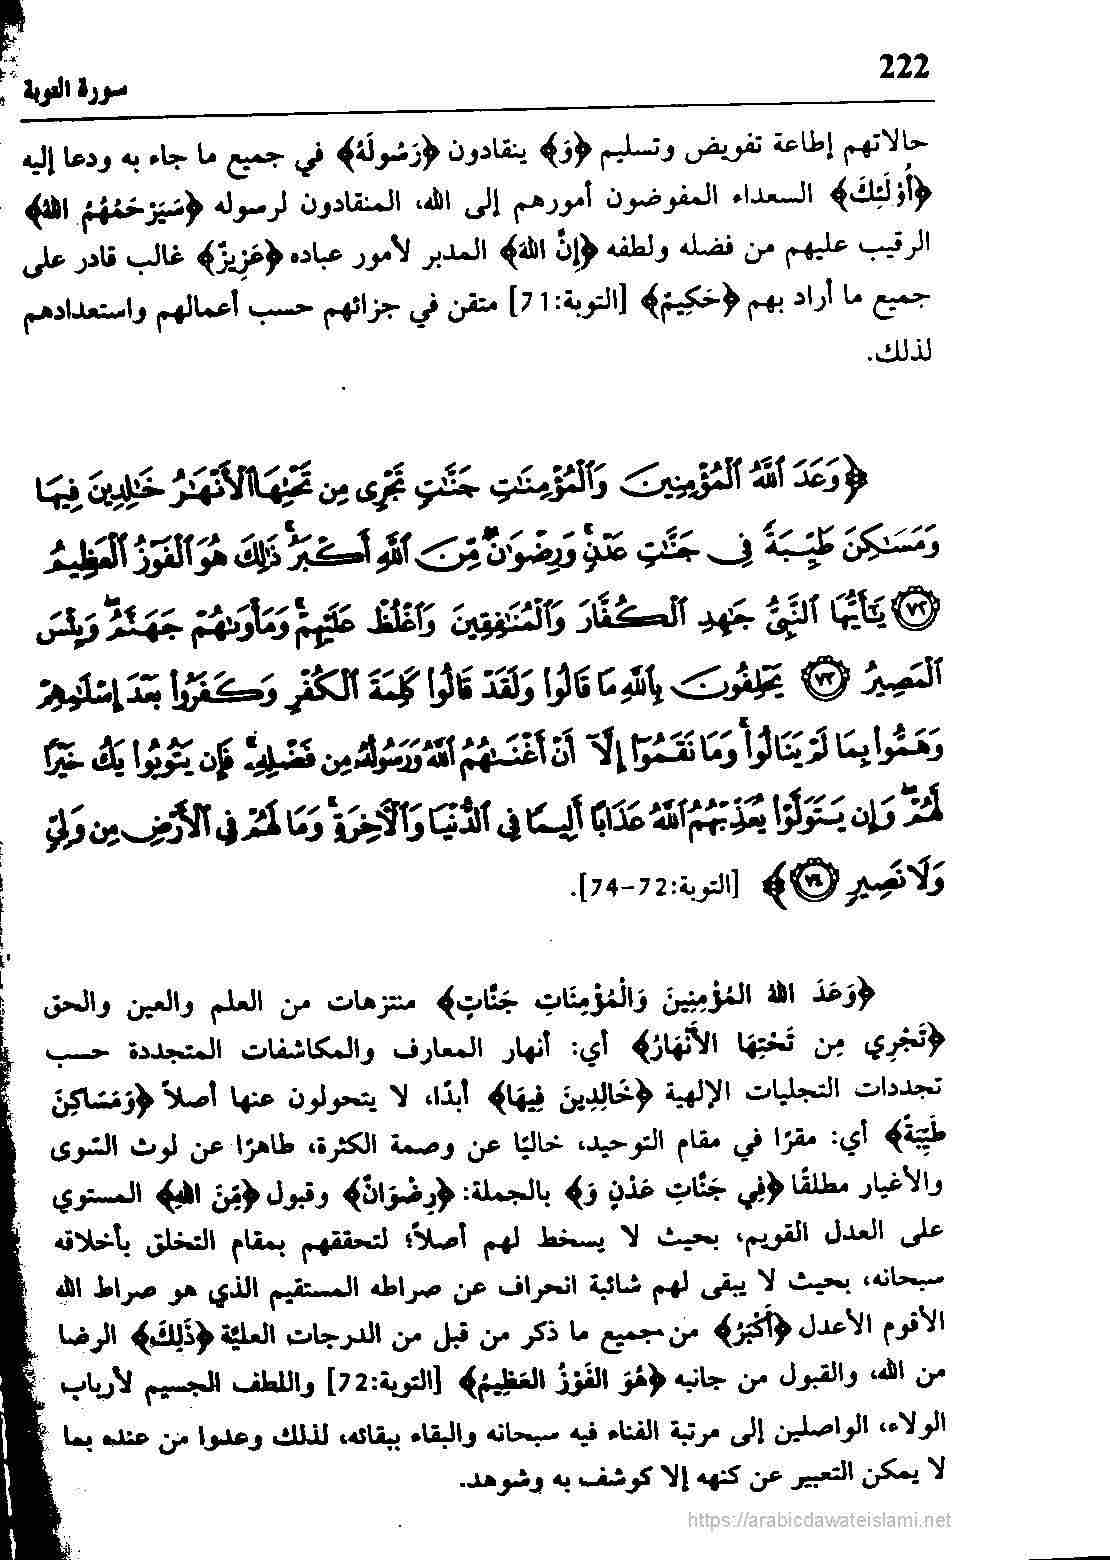 222
سورة التوبة
حالاتهم إطاعة تفويض وتسليم ﴿وَ﴾ ينقادون ﴿رَسُولَهُ﴾ في جميع ما جاء به ودعا إليه
﴿أُوْلَئِكَ﴾ السعداء المفوضون أمورهم إلى الله، المنقادون لرسوله ﴿سَيَرْحَمُهُمُ اللهُ﴾
الرقيب عليهم من فضله ولطفه ﴿إِنَّ اللهَ﴾ المدبر لأمور عباده ﴿عَزِيزٌ﴾ غالب قادر على
جميع ما أراد بهم ﴿حَكِيمٌ﴾ [التوبة:71] متقن في جزائهم حسب أعمالهم واستعدادهم
لذلك.
﴿وَعَدَ ٱللَّهُ ٱلْمُؤْمِنِينَ وَٱلْمُؤْمِنَٰتِ جَنَّٰتٍ تَجْرِى مِن تَحْتِهَا ٱلْأَنْهَٰرُ خَٰلِدِينَ فِيهَا
وَمَسَٰكِنَ طَيِّبَةً فِى جَنَّٰتِ عَدْنٍ ۚ وَرِضْوَٰنٌ مِّنَ ٱللَّهِ أَكْبَرُ ۚ ذَٰلِكَ هُوَ ٱلْفَوْزُ ٱلْعَظِيمُ
٧٢ يَٰٓأَيُّهَا ٱلنَّبِىُّ جَٰهِدِ ٱلْكُفَّارَ وَٱلْمُنَٰفِقِينَ وَٱغْلُظْ عَلَيْهِمْ ۚ وَمَأْوَىٰهُمْ جَهَنَّمُ ۖ وَبِئْسَ
ٱلْمَصِيرُ ٧٣ يَحْلِفُونَ بِٱللَّهِ مَا قَالُوا۟ وَلَقَدْ قَالُوا۟ كَلِمَةَ ٱلْكُفْرِ وَكَفَرُوا۟ بَعْدَ إِسْلَٰمِهِمْ
وَهَمُّوا۟ بِمَا لَمْ يَنَالُوا۟ ۚ وَمَا نَقَمُوٓا۟ إِلَّآ أَنْ أَغْنَىٰهُمُ ٱللَّهُ وَرَسُولُهُۥ مِن فَضْلِهِۦ ۚ فَإِن يَتُوبُوا۟ يَكُ خَيْرًا
لَّهُمْ ۖ وَإِن يَتَوَلَّوْا۟ يُعَذِّبْهُمُ ٱللَّهُ عَذَابًا أَلِيمًا فِى ٱلدُّنْيَا وَٱلْءَاخِرَةِ ۚ وَمَا لَهُمْ فِى ٱلْأَرْضِ مِن وَلِىٍّ
وَلَا نَصِيرٍ ٧٤﴾ [التوبة:72-74].
﴿وَعَدَ اللهُ المُؤْمِنِينَ وَالْمُؤْمِنَاتِ جَنَّاتٍ﴾ منتزهات من العلم والعين والحق
﴿تَجْرِي مِن تَحْتِهَا الأَنْهَارُ﴾ أي: أنهار المعارف والمكاشفات المتجددة حسب
تجددات التجليات الإلهية ﴿خَالِدِينَ فِيهَا﴾ أبدًا، لا يتحولون عنها أصلاً ﴿وَمَسَاكِنَ
طَيِّبَةً﴾ أي: مقرًا في مقام التوحيد، خاليًا عن وصمة الكثرة، طاهرًا عن لوث السّوى
والأغيار مطلقًا ﴿فِي جَنَّاتِ عَدْنٍ وَ﴾ بالجملة: ﴿رِضْوَانٌ﴾ وقبول ﴿مِّنَ اللهِ﴾ المستوي
على العدل القويم، بحيث لا يسخط لهم أصلاً؛ لتحققهم بمقام التخلق بأخلاقه
سبحانه، بحيث لا يبقى لهم شائبة انحراف عن صراطه المستقيم الذي هو صراط الله
الأقوم الأعدل ﴿أَكْبَرُ﴾ من جميع ما ذكر من قبل من الدرجات العليَّة ﴿ذَلِكَ﴾ الرضا
من الله، والقبول من جانبه ﴿هُوَ الفَوْزُ العَظِيمُ﴾ [التوبة:72] واللطف الجسيم لأرباب
الولاء، الواصلين إلى مرتبة الفناء فيه سبحانه والبقاء ببقائه، لذلك وعدوا من عنده بما
لا يمكن التعبير عن كنهه إلا كوشف به وشوهد.
https://arabicdawateislami.net